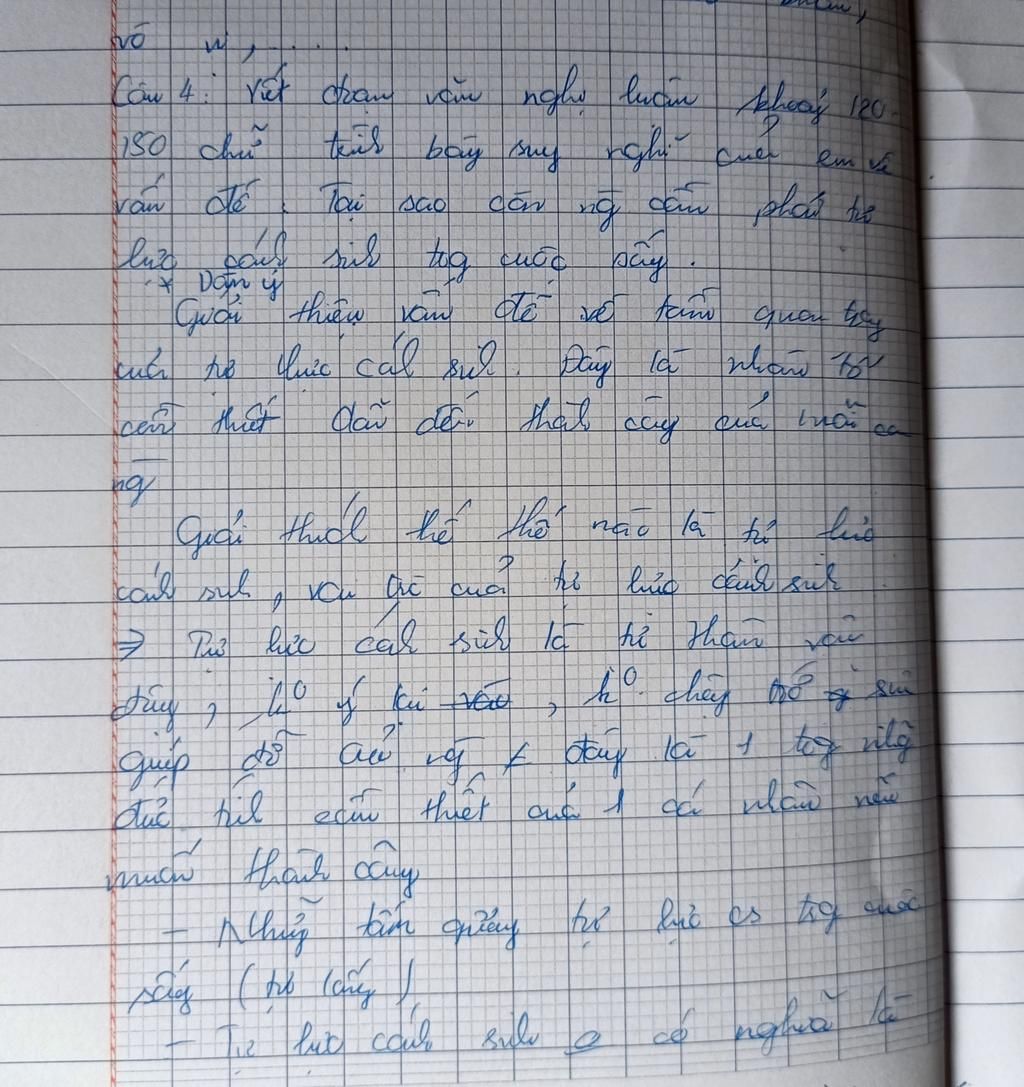 vô vị, .....
Câu 4: Viết đoạn văn nghị luận khoảng 120-
150 chữ trình bày suy nghĩ của em về
vấn đề. Tại sao con ng cần phải tự
lực cánh sinh tog cuộc sống.
* Dàn ý
Giới thiệu vấn đề về tầm quan trọng
của tự lực cánh sinh. Đây là nhân tố
cần thiết dẫn đến thành công của mỗi con
ng
Giải thích thế nào là tự lực
cánh sinh, vai trò của tự lực cánh sinh
⇒ Tự lực cánh sinh là tự thân vận
động, k⁰ ỷ lại, k⁰ sự
giúp đỡ của ng đây là 1 tog nhg
đức tính cần thiết của 1 cá nhân nếu
muốn thành công
- Những tấm gương tự lực cs tog cuộc
sống (tự lấy)
- Tự lực cánh sinh có nghĩa là